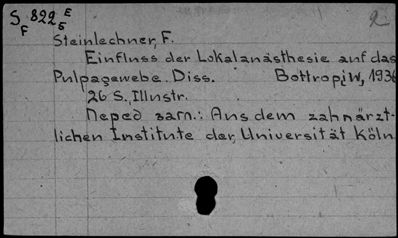 S 822 E
F 5
2
Steinlechner, F.
Einfluss der Lokalanästhesie auf das
Pulpagewebe. Diss. Bottrop i/W, 1936
26 S., Illustr.
Перед загл.: Aus dem zahnärzt-
lichen Institute der Universität Köln